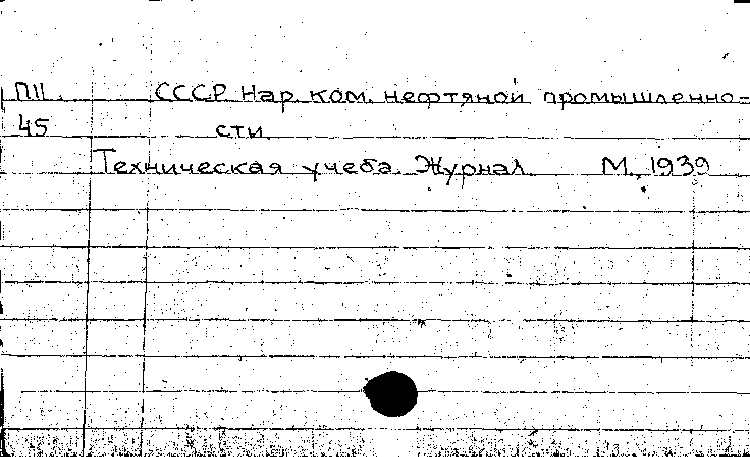 П11. СССР Нар. ком. нефтяной промышленно=
45 сти.
Техническая учеба. Журнал. М., 1939